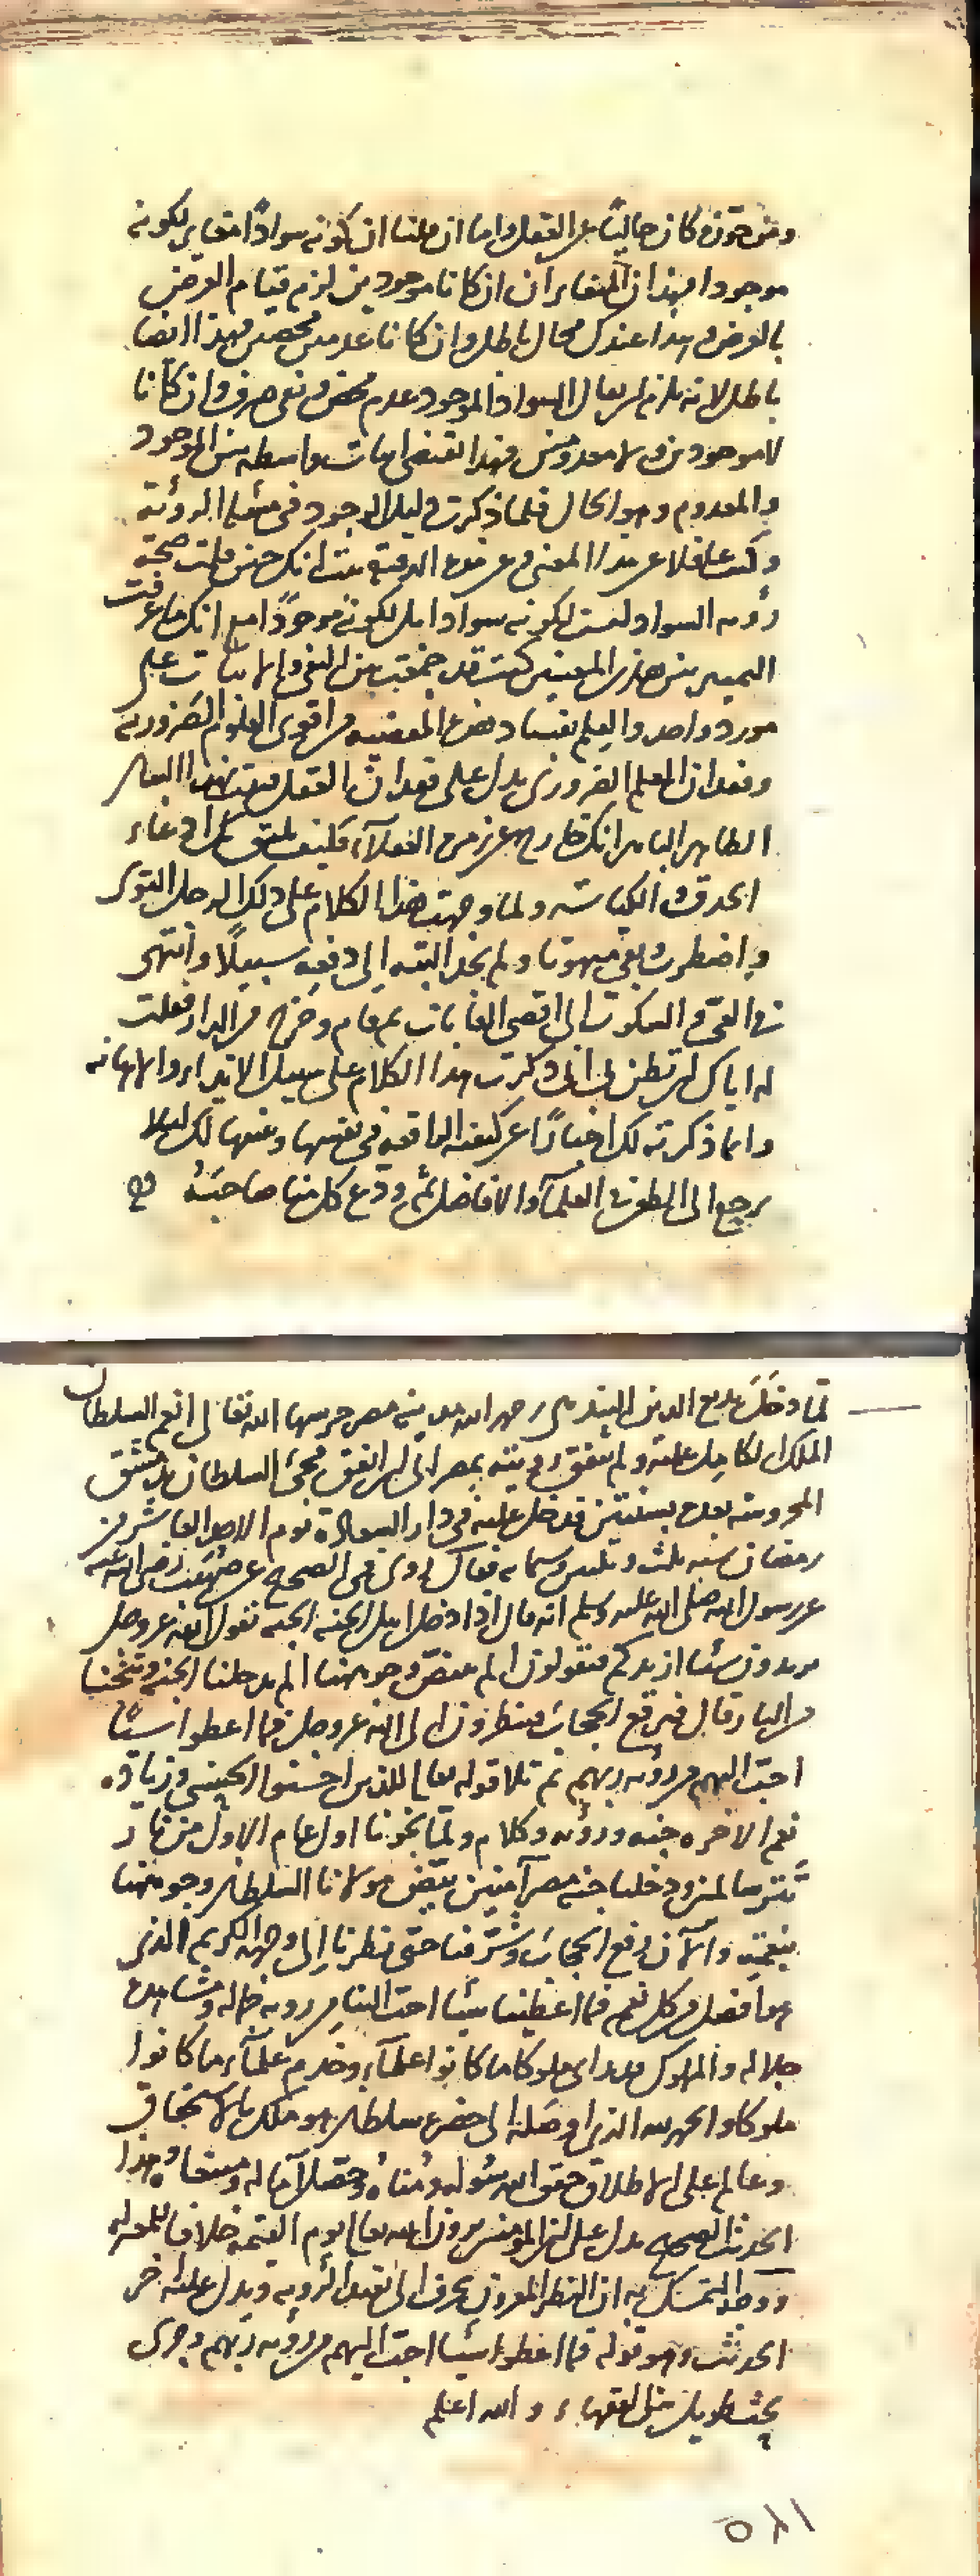 ومن جوزه كان خاليًا عن العقل واما ان قلنا ان كونه سوادًا مغاير لكونه
موجودا فهذان المتغايران ان كانا موجودين لزم قيام العرض
بالعرض وهذا عندك محال باطل وان كانا عدمين محضين فهذا ايضا
باطل لانه يلزم ان يقال السواد الموجود عدم محض ونفي صرف وان كانا
لا موجودين ولا معدومين فهذا يقتضي اثبات واسطة بين الموجود
والمعدوم وهو الحال فلما ذكرت دليل الوجود في مسئلة الرؤية
وكنت غافلا عن هذا المعنى وعن هذه الدقيقة ثبت انك حين قلت صحة
رؤية السواد ليست لكونه سوادا بل لكونه موجودًا مع انك ما عرفت
التمييز بين هذين المعنيين كنت قد جمعت بين النفي والاثبات على
مورد واحد والعلم بفساد هذه القضية من اقوى العلوم الضرورية
وفقدان العلم الضروري يدل على فقدان العقل فثبت بهذا البيان
الظاهر الباهر انك خارج عن زمرة العقلاء فكيف يليق بك ادعاء
الحذق والكياسة ولما وجهت هذا الكلام على ذلك الرجل التوى
واضطرب وبقي مبهوتا ولم يجد البتة الى دفعه سبيلًا وانتهى
في العي والسكوت الى اقصى الغايات ثم قام وخرج من الدار فقلت
له اياك ان تظن اني ذكرت هذا الكلام على سبيل الايذاء والاهانة
وانما ذكرته لك اخبارًا عن كيفية الواقعة في نفسها وتنبيها لك لئلا
يرجع الى الطعن في العلماء والافاضل ثم ودع كل منا صاحبه
لما دخل بديع الدين البندهي رحمه الله مدينة مصر حرسها الله تعالى انعم السلطان
الملك الكامل عليه ولم يتفق رؤيته بمصر الى ان اتفق مجئ السلطان بدمشق
المحروسة بعد بسنتين فدخل عليه في دار السعادة يوم الاحد العاشر من
رمضان سنة ثلث وثلثين وستمائة فقال روى في الصحيح عن صهيب رضي الله عنه
عن رسول الله صلى الله عليه وسلم انه قال اذا دخل اهل الجنة الجنة يقول الله عز وجل
تريدون شيئا ازيدكم فيقولون الم تبيض وجوهنا الم تدخلنا الجنة وتنجنا
من النار قال فيرفع الحجاب فينظرون الى الله عز وجل فما اعطوا شيئا
احب اليهم من رؤية ربهم ثم تلا قوله تعالى للذين احسنوا الحسنى وزيادة
نعم الاخرة جنة ورؤية وكلام ولما نجونا اول عام الاول من نار
ودخلنا جنة مصر آمنين بيض مولانا السلطان وجوهنا
بنعمته والآن رفع الحجاب وشرفنا حتى نظرنا الى وجهه الكريم الذي
هو افضل من كل نعم فما اعطينا شيئا احب الينا من رؤية جماله ومشاهدة
جلاله والملوك ملوكا ما كانوا علماء وخدم علماء ما كانوا
ملوكا والحمد لله الذي اوصلنا الى حضرة سلطان هو ملك بالاستحقاق
وعالم على الاطلاق حقق الله سوله ومناه وحصل آماله وهذا
الحديث الصحيح يدل على ان المؤمنين يرون الله تعالى يوم القيمة خلافا للمعتزلة
ووجه التمسك به ان النظر المقرون بحرف الى يفيد الرؤية ويدل عليه اخر
الحديث وهو قوله فما اعطوا شيئا احب اليهم من رؤية ربهم وجرى
بحث طويل من الفقهاء والله اعلم